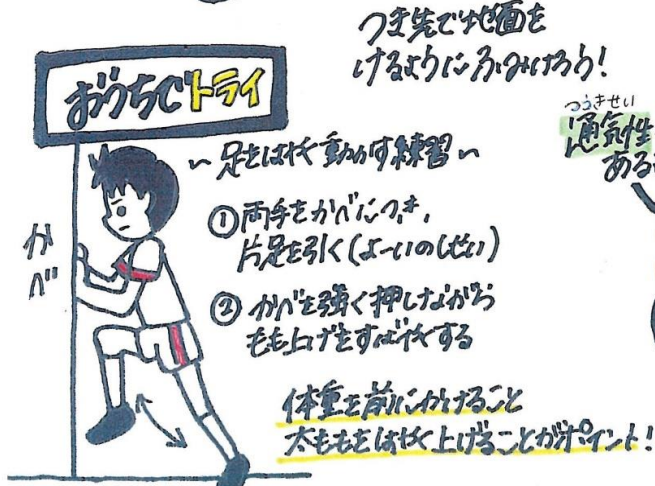 つま先で地面を
けるようにふみけろう!
おうちでトライ
つうきせい
通気性
ある
~足をはやく動かす練習~
①両手をかべにつき、
片足を引く(よーいのしせい)
②かべを強く押しながら
もも上げをすばやくする
かべ
体重を前にかけること
太ももをはやく上げることがポイント!